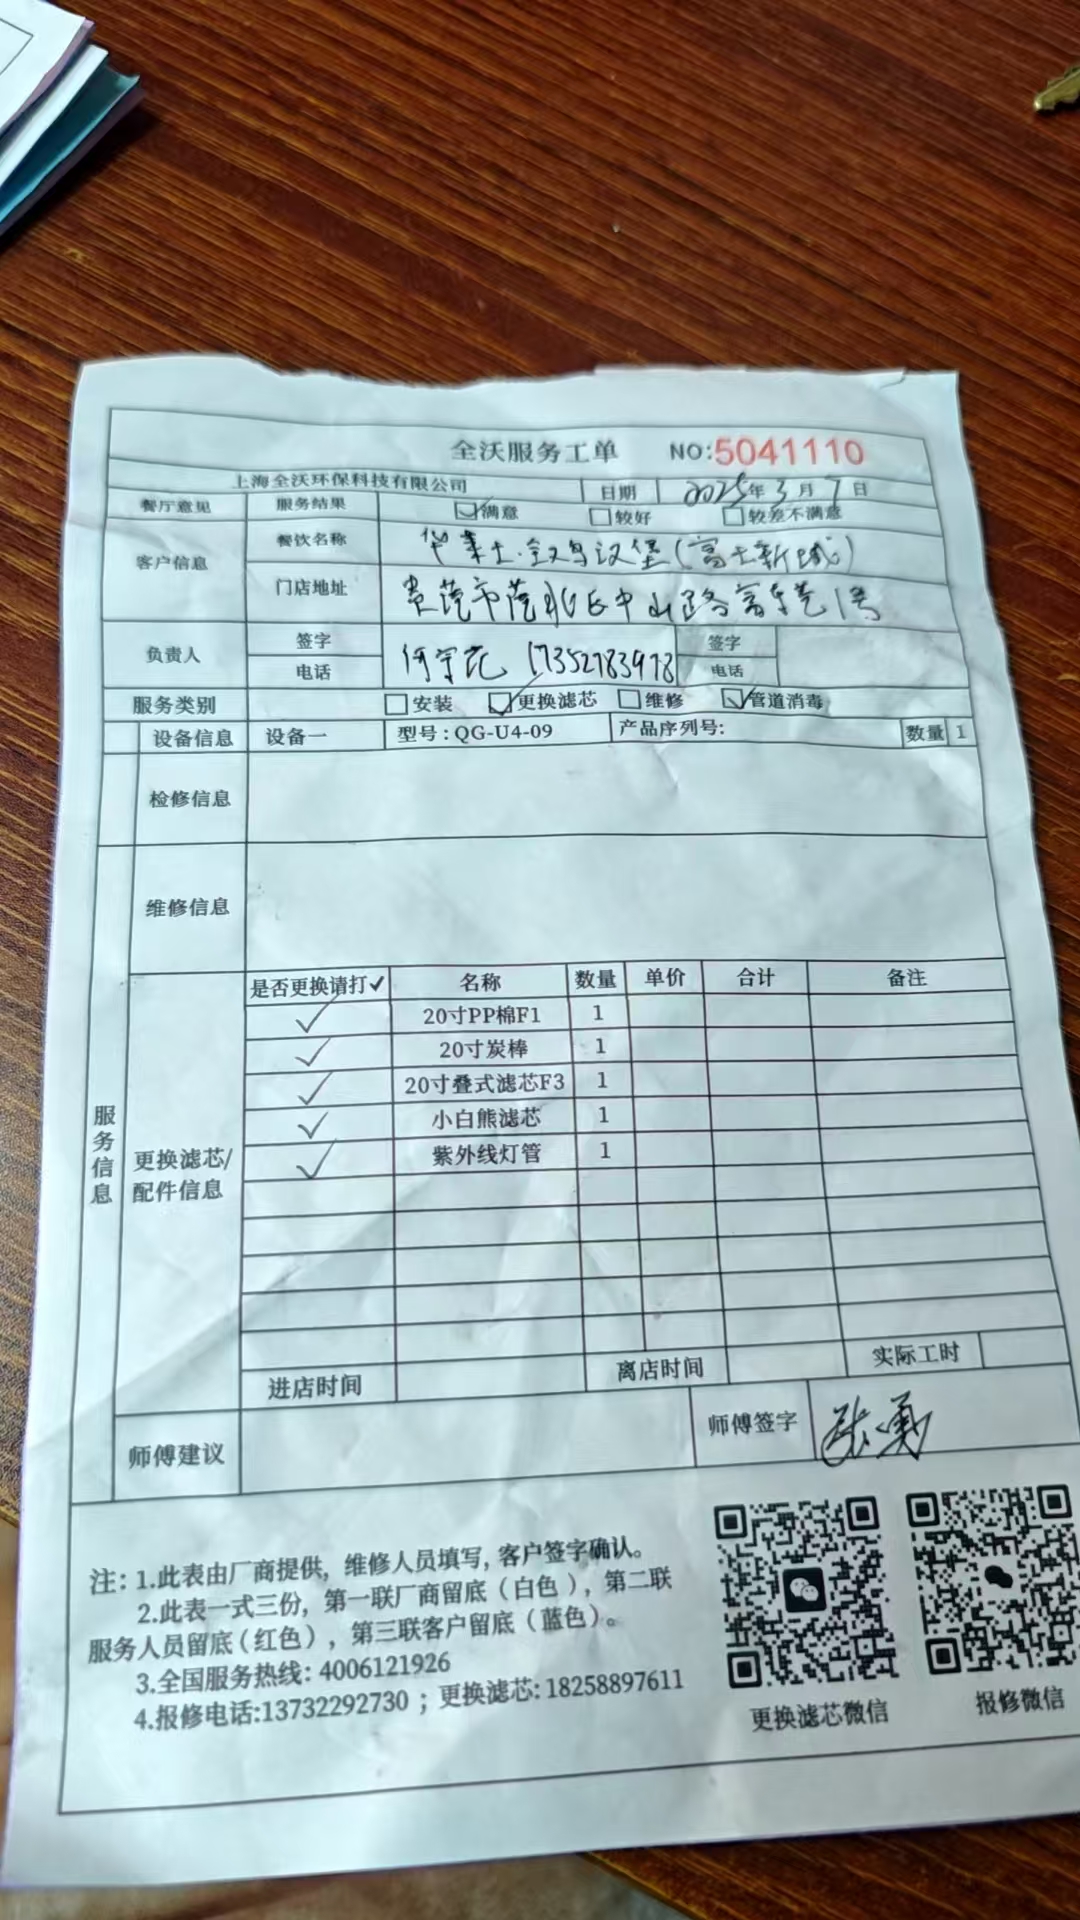 全沃服务工单 NO:5041110
上海全沃环保科技有限公司 日期 2025年3月7日
餐厅意见 服务结果 满意 较好 较差不满意
客户信息 餐饮名称 华莱士·全鸡汉堡(富士新城)
门店地址 市 北区中山路富 1号
负责人 签字 何宇花 签字
电话 17352783978 电话
服务类别 安装 更换滤芯 维修 管道消毒
设备信息 设备一 型号:QG-U4-09 产品序列号: 数量 1
检修信息
维修信息
服务信息
更换滤芯/配件信息
是否更换请打✓ 名称 数量 单价 合计 备注
✓ 20寸PP棉F1 1
✓ 20寸炭棒 1
✓ 20寸叠式滤芯F3 1
✓ 小白熊滤芯 1
✓ 紫外线灯管 1
进店时间 离店时间 实际工时
师傅建议 师傅签字 张勇
注:1.此表由厂商提供,维修人员填写,客户签字确认。
2.此表一式三份,第一联厂商留底(白色),第二联
服务人员留底(红色),第三联客户留底(蓝色)。
3.全国服务热线:4006121926
4.报修电话:13732292730;更换滤芯:18258897611
更换滤芯微信 报修微信